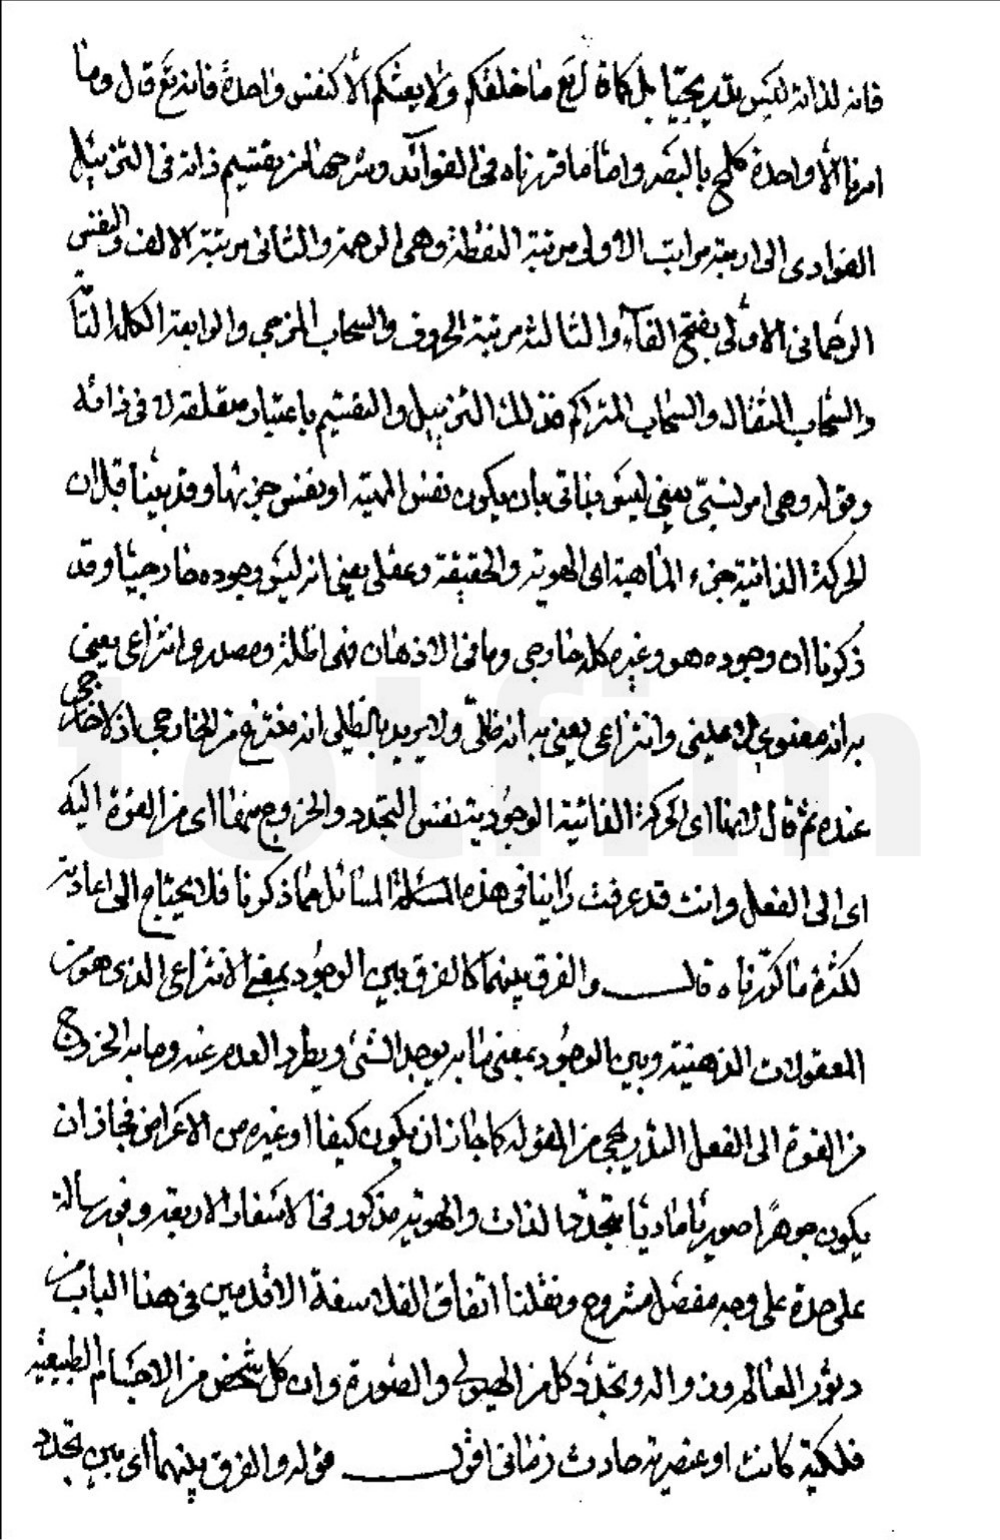 فانه لذاته ليس بتدريجيا بل كما قال تع ما خلقكم ولا بعثكم الا كنفس واحدة فانه تع قال وما
امرنا الا واحدة كلمح بالبصر واما ما قررناه في الفوائد وشرحها من تقسيم ذاته في التنزييل
الفؤادى الى اربعة مراتب الاولى مرتبة النقطة وهي الرحمة والثاني مرتبة الالف والنفس
الرحماني الاولى بفتح الفاء والثالثة مرتبة الحروف والسحاب المزجى والرابعة الكلمة التامة
والسحاب الثقال والسحاب المتراكم فذلك التنزييل والتقسيم باعتبار متعلقه لا في ذاته
وقوله وهي امر نسبي يعني ليس بذاتي بان يكون نفس المهية او نفس جزئها وقد بينا قبل ان
الحركة الذاتية جزء الماهية اى الهوية والحقيقة وعقلى يعني انه ليس وجوده خارجيا وقد
ذكرنا ان وجوده هو وغيره كله خارجى وما في الاذهان فهي اظلة ومصدرى انتزاعى يعني
به انه معنوى لا عيني وانتزاعى يعني به انه ظلى ولا يريد بالظلى انه منتزع من الخارجى اذ لا خارجى
عنده ثم قال لانها اى الحركة الذاتية الوجودية نفس التجدد والخروج منها اى من القوة اليه
اى الى الفعل وانت قد عرفت راينا في هذه المسئلة المسائل مما ذكرنا فلا يحتاج الى اعادته
لكثرة ما كررناه قال والفرق بينهما كالفرق بين الوجود بمعنى الانتزاعى الذى هو من
المعقولات الذهنية وبين الوجود بمعنى ما به يوجد الشئ ويطرد العدم عنه وما به الخروج
من القوة الى الفعل التدريجى من المقولة كما جاز ان يكون كيفا او غيره من الاعراض فجاز ان
يكون جوهرا صوريا ماديا متجدد الذات والهوية مذكور في الاسفار الاربعة وفي رسالة
على حدة على وجه مفصل مشروح ونقلنا اتفاق الفلاسفة الاقدمين في هذا الباب من
دثور العالم وزواله وتجدد كل من الهيولى والصورة وان كل شخص من الاجسام الطبيعية
فلكية كانت او عنصرية حادث زماني اقول قوله والفرق بينهما اى بين تجدد